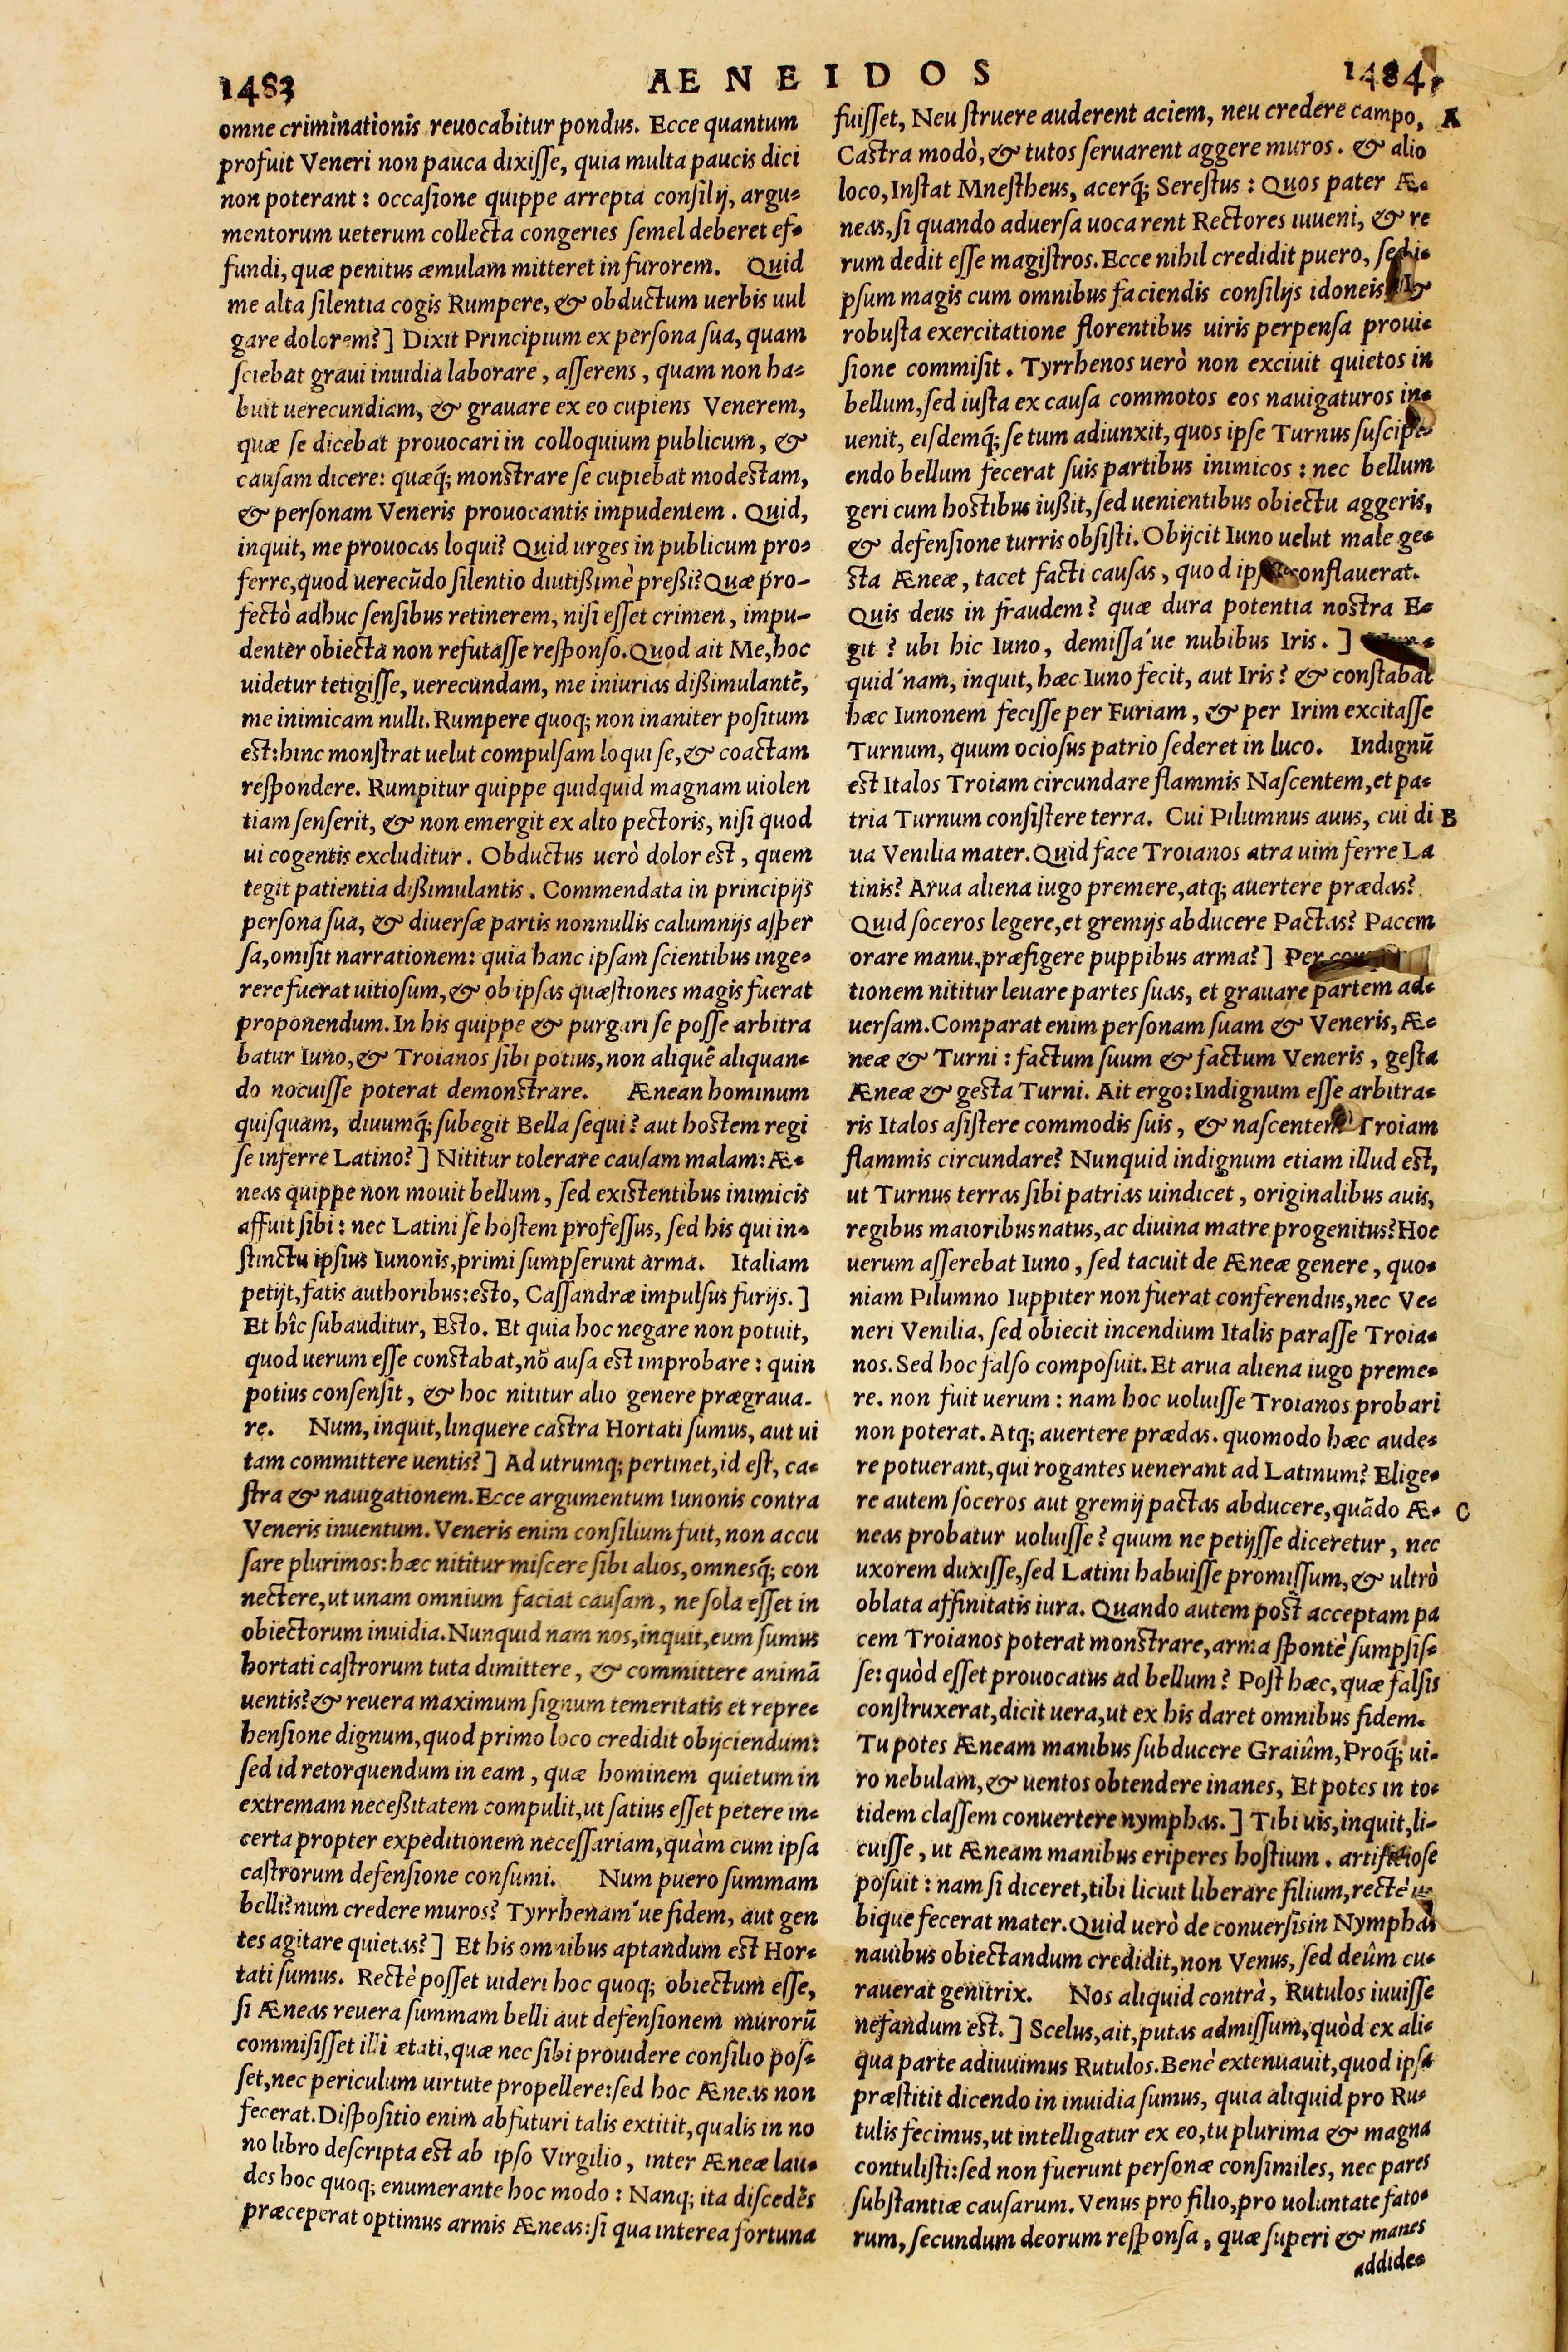 1483
AENEIDOS
1484
omne criminationis reuocabitur pondus. Ecce quantum
profuit Veneri non pauca dixisse, quia multa paucis dici
non poterant: occasione quippe arrepta consilij, argu-
mentorum ueterum collecta congeries semel deberet ef-
fundi, quæ penitus æmulam mitteret in furorem. Quid
me alta silentia cogis Rumpere, & obductum uerbis uul
gare dolorem?] Dixit Principium ex persona sua, quam
sciebat graui inuidia laborare, asserens, quam non ha-
buit uerecundiam, & grauare ex eo cupiens Venerem,
quæ se dicebat prouocari in colloquium publicum, &
causam dicere: quæq́; monstrare se cupiebat modestam,
& personam Veneris prouocantis impudentem. Quid,
inquit, me prouocas loqui? Quid urges in publicum pro-
ferre, quod uerecũdo silentio diutißimè preßi? Quæ pro-
fectò adhuc sensibus retinerem, nisi esset crimen, impu-
denter obiecta non refutasse responso. Quod ait Me, hoc
uidetur tetigisse, uerecundam, me iniurias dißimulantẽ,
me inimicam nulli. Rumpere quoq; non inaniter positum
est: hinc monstrat uelut compulsam loqui se, & coactam
respondere. Rumpitur quippe quidquid magnam uiolen
tiam senserit, & non emergit ex alto pectoris, nisi quod
ui cogentis excluditur. Obductus uerò dolor est, quem
tegit patientia dißimulantis. Commendata in principijs
persona sua, & diuersæ partis nonnullis calumnijs asper
sa, omisit narrationem: quia hanc ipsam scientibus inge-
rere fuerat uitiosum, & ob ipsas quæstiones magis fuerat
proponendum. In his quippe & purgari se posse arbitra
batur Iuno, & Troianos sibi potius, non aliquẽ aliquan-
do nocuisse poterat demonstrare. Ænean hominum
quisquam, diuumq́; subegit Bella sequi? aut hostem regi
se inferre Latino?] Nititur tolerare causam malam: Æ-
neas quippe non mouit bellum, sed existentibus inimicis
affuit sibi: nec Latini se hostem professus, sed his qui in-
stinctu ipsius Iunonis, primi sumpserunt arma. Italiam
petijt, fatis authoribus: esto, Cassandræ impulsus furijs.]
Et hîc subauditur, Esto. Et quia hoc negare non potuit,
quod uerum esse constabat, nõ ausa est improbare: quin
potius consensit, & hoc nititur alio genere prægraua-
re. Num, inquit, linquere castra Hortati sumus, aut ui
tam committere uentis?] Ad utrumq; pertinet, id est, ca-
stra & nauigationem. Ecce argumentum Iunonis contra
Veneris inuentum. Veneris enim consilium fuit, non accu
sare plurimos: hæc nititur miscere sibi alios, omnesq́; con
nectere, ut unam omnium faciat causam, ne sola esset in
obiectorum inuidia. Nunquid nam nos, inquit, eum sumus
hortati castrorum tuta dimittere, & committere animã
uentis? & reuera maximum signum temeritatis et repre-
hensione dignum, quod primo loco credidit obijciendum:
sed id retorquendum in eam, quæ hominem quietum in
extremam neceßitatem compulit, ut satius esset petere in-
certa propter expeditionem necessariam, quàm cum ipsa
castrorum defensione consumi. Num puero summam
belli? num credere muros? Tyrrhenam´ue fidem, aut gen
tes agitare quietas?] Et his omnibus aptandum est Hor-
tati sumus. Rectè posset uideri hoc quoq; obiectum esse,
si Æneas reuera summam belli aut defensionem murorũ
commisisset illi ætati, quæ nec sibi prouidere consilio pos-
set, nec periculum uirtute propellere: sed hoc Æneas non
fecerat. Dispositio enim abfuturi talis extitit, qualis in no
no libro descripta est ab ipso Virgilio, inter Æneæ lau-
des hoc quoq; enumerante hoc modo: Nanq; ita discedẽs
præceperat optimus armis Æneas: si qua interea fortuna
fuisset, Neu struere auderent aciem, neu credere campo, A
Castra modò, & tutos seruarent aggere muros. & alio
loco, Instat Mnestheus, acerq́; Serestus: Quos pater Æ-
neas, si quando aduersa uocarent Rectores iuueni, & re
rum dedit esse magistros. Ecce nihil credidit puero, sed i-
psum magis cum omnibus faciendis consilijs idoneis, &
robusta exercitatione florentibus uiris perpensa proui-
sione commisit. Tyrrhenos uerò non exciuit quietos in
bellum, sed iusta ex causa commotos eos nauigaturos in-
uenit, eisdemq́; se tum adiunxit, quos ipse Turnus suscipi-
endo bellum fecerat suis partibus inimicos: nec bellum
geri cum hostibus iußit, sed uenientibus obiectu aggeris,
& defensione turris obsisti. Obijcit Iuno uelut male ge-
sta Æneæ, tacet facti causas, quod conflauerat.
Quis deus in fraudem? quæ dura potentia nostra E-
git? ubi hic Iuno, demissa´ue nubibus Iris.]
quid´nam, inquit, hæc Iuno fecit, aut Iris? & constabat
hæc Iunonem fecisse per Furiam, & per Irim excitasse
Turnum, quum ociosus patrio sederet in luco. Indignũ
est Italos Troiam circundare flammis Nascentem, et pa-
tria Turnum consistere terra. Cui Pilumnus auus, cui di B
ua Venilia mater. Quid face Troianos atra uim ferre La
tinis? Arua aliena iugo premere, atq; auertere prædas?
Quid soceros legere, et gremijs abducere Pactas? Pacem
orare manu, præfigere puppibus arma?] Per
tionem nititur leuare partes suas, et grauare partem ad-
uersam. Comparat enim personam suam & Veneris, Æ-
neæ & Turni: factum suum & factum Veneris, gesta
Æneæ & gesta Turni. Ait ergo: Indignum esse arbitra-
ris Italos asistere commodis suis, & nascentem Troiam
flammis circundare? Nunquid indignum etiam illud est,
ut Turnus terras sibi patrias uindicet, originalibus auis,
regibus maioribus natus, ac diuina matre progenitus? Hoc
uerum asserebat Iuno, sed tacuit de Æneæ genere, quo-
niam Pilumno Iuppiter non fuerat conferendus, nec Ve-
neri Venilia, sed obiecit incendium Italis parasse Troia-
nos. Sed hoc falso composuit. Et arua aliena iugo preme-
re. non fuit uerum: nam hoc uoluisse Troianos probari
non poterat. Atq; auertere prædas. quomodo hæc aude-
re potuerant, qui rogantes uenerant ad Latinum? Elige-
re autem soceros aut gremij pactas abducere, quãdo Æ- C
neas probatur uoluisse? quum ne petijsse diceretur, nec
uxorem duxisse, sed Latini habuisse promissum, & ultrò
oblata affinitatis iura. Quando autem post acceptam pa
cem Troianos poterat monstrare, arma spontè sumpsis-
se: quòd esset prouocatus ad bellum? Post hæc, quæ falsis
construxerat, dicit uera, ut ex his daret omnibus fidem.
Tu potes Æneam manibus subducere Graiûm, Proq́; ui-
ro nebulam, & uentos obtendere inanes, Et potes in to-
tidem classem conuertere nymphas.] Tibi uis, inquit, li-
cuisse, ut Æneam manibus eriperes hostium. artificiose
posuit: nam si diceret, tibi licuit liberare filium, rectè u-
bique fecerat mater. Quid uerò de conuersis in Nymphas
nauibus obiectandum credidit, non Venus, sed deûm cu-
rauerat genitrix. Nos aliquid contrà, Rutulos iuuisse
nefandum est.] Scelus, ait, putas admissum, quòd ex ali-
qua parte adiuuimus Rutulos. Benè extenuauit, quod ipsa
præstitit dicendo in inuidia sumus, quia aliquid pro Ru-
tulis fecimus, ut intelligatur ex eo, tu plurima & magna
contulisti: sed non fuerunt personæ consimiles, nec pares
substantiæ causarum. Venus pro filio, pro uoluntate fato-
rum, secundum deorum responsa, quæ superi & manes
addide-